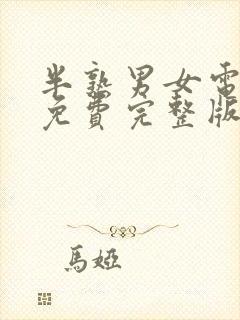 半熟男女電
免費完整版
馬婭